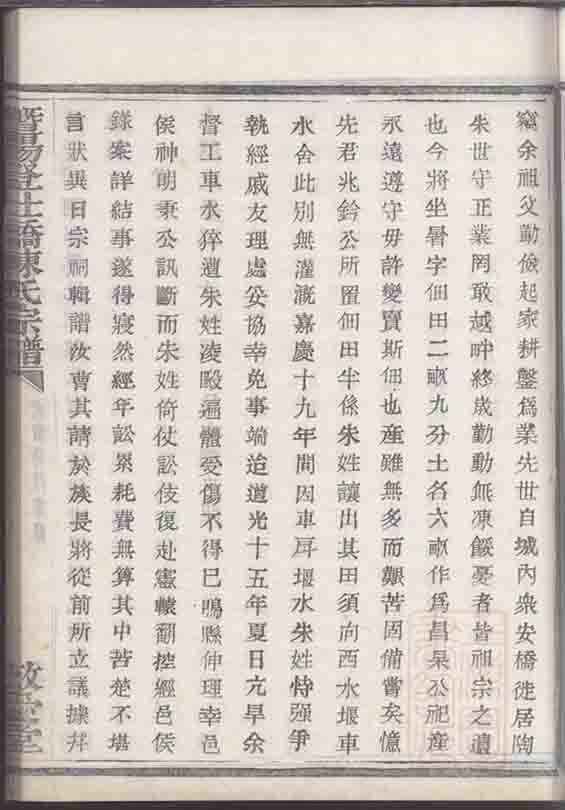 竊余祖父勤儉起家耕鑿爲業先世自城內眾安橋徙居陶
朱世守正業罔敢越畔終歲勤動無凍餒憂者皆祖宗之遺
也今將坐暑字佃田二畝九分土名六畝作爲昌杲公祀產
永遠遵守毋許變賣斯佃也產雖無多而艱苦固備嘗矣憶
先君兆鈴公所置佃田半係朱姓讓出其田須向西水堰車
水舍此別無灌溉嘉慶十九年間因車戽堰水朱姓恃强爭
執經戚友理處妥協幸免事端迨道光十五年夏日亢旱余
督工車水猝遭朱姓凌毆遍體受傷不得已鳴縣伸理幸邑
侯神明秉公訊斷而朱姓倚仗訟伎復赴憲轅翻控經邑侯
錄案詳結事遂得寢然經年訟累耗費無算其中苦楚不堪
言狀異日宗祠輯譜汝曹其請於族長將從前所立議據幷
暨陽登仕橋陳氏宗譜